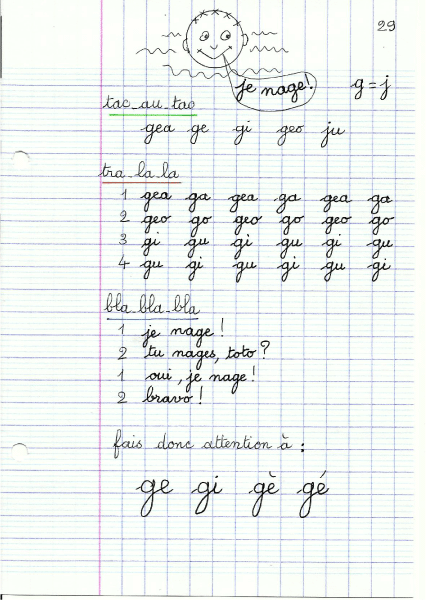 29
je nage!
g = j
tac au tac
gea ge gi geo ju
tra la la
1 gea ga gea ga gea ga
2 geo go geo go geo go
3 gi gu gi gu gi gu
4 gu gi gu gi gu gi
bla bla bla
1 je nage !
2 tu nages, toto ?
1 oui, je nage !
2 bravo !
fais donc attention à :
ge gi gè gé